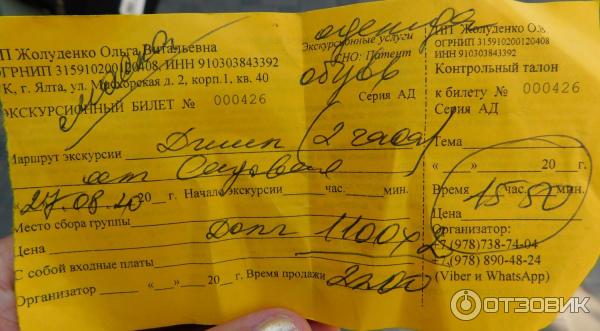 ИП Жолуденко Ольга Витальевна
ОГРНИП 315910200120408, ИНН 910303843392
РК, г. Ялта, ул. Мисхорская д. 2, корп.1, кв. 40
ЭКСКУРСИОННЫЙ БИЛЕТ № 000426
одежда
Экскурсионные услуги
СНО: Патент
обувь
Серия АД
Маршрут экскурсии Джип (2 часа)
"27.08.20 20__г. Начало экскурсии ____ час. ____ мин.
Место сбора группы
Цена Долг 1100 х 2
С собой входные платы 2200
Организатор ____ «__»____ 20__г. Время продажи
ИП Жолуденко О.В.
ОГРНИП 315910200120408
ИНН 910303843392
Контрольный талон
к билету № 000426
Серия АД
Тема
«__»____ 20__г.
Время 15 час. 50 мин.
Цена
Организатор:
+7 (978)738-74-04
+7 (978) 890-48-24
(Viber и WhatsApp)
ОТЗОВИК